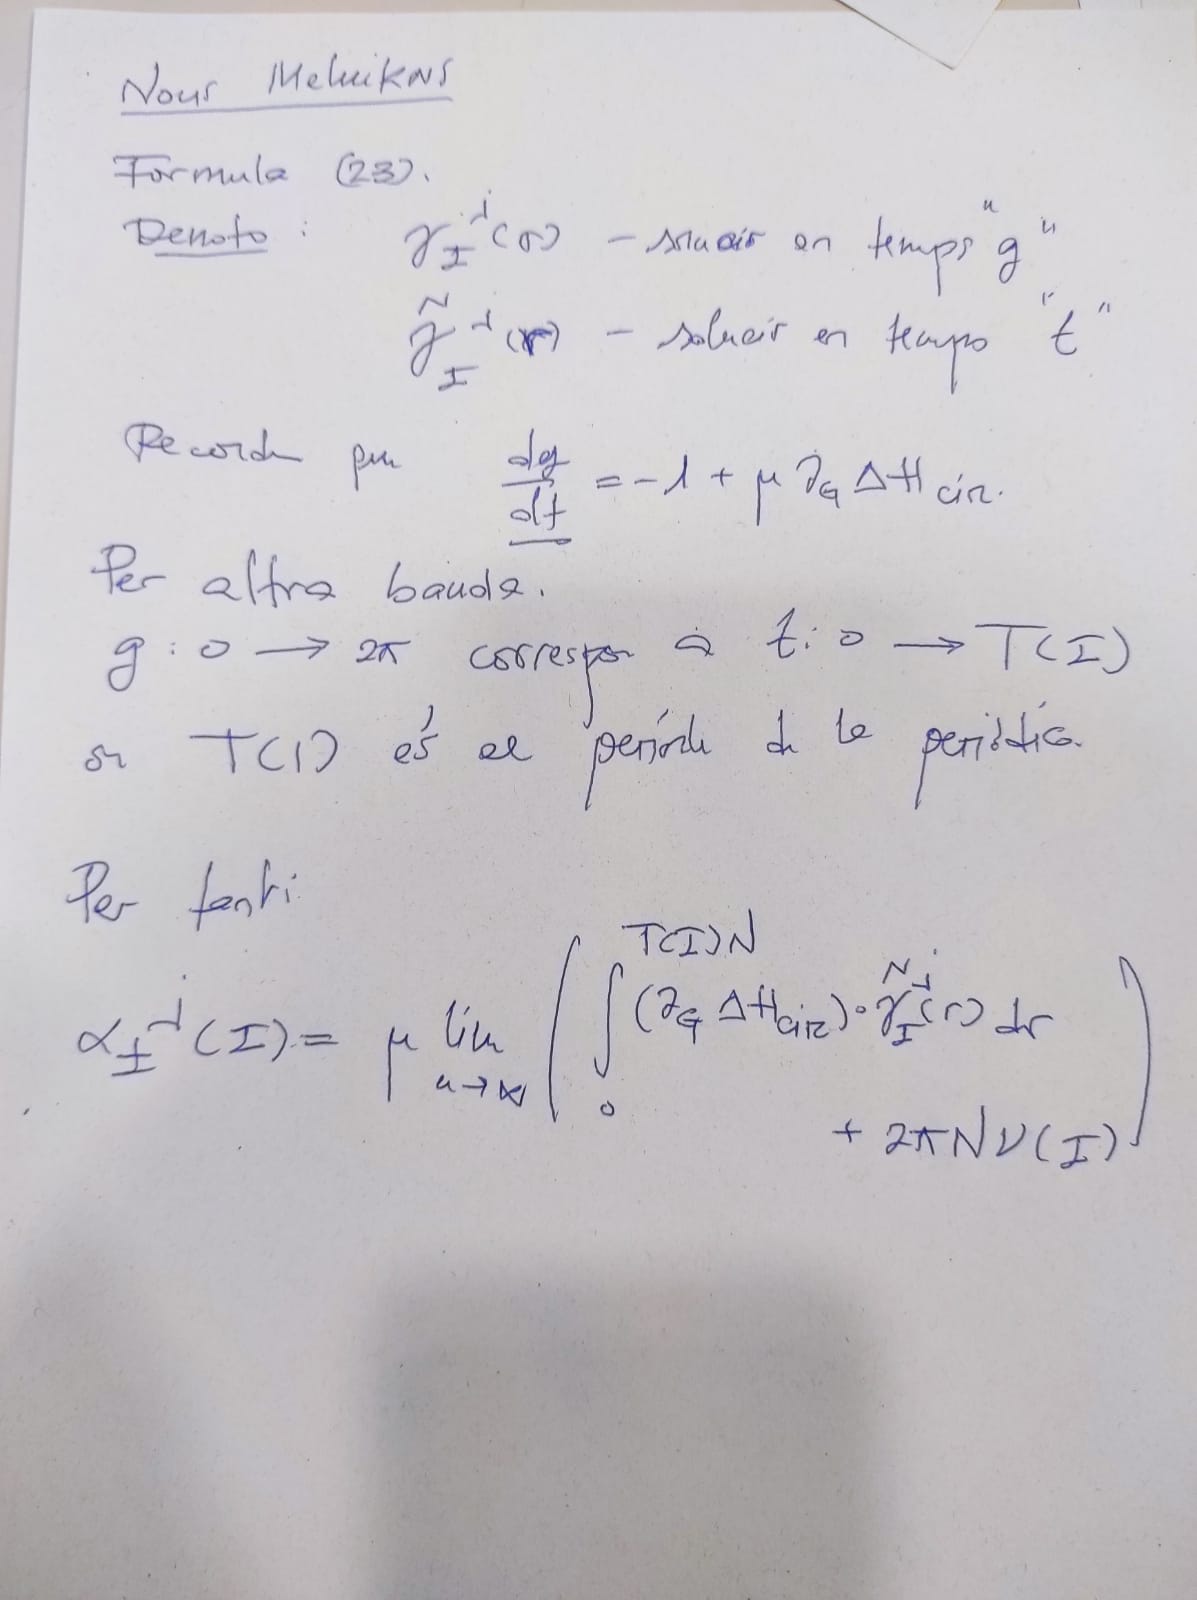 Nous Melnikovs
Formula (23).
Denoto : γ_I^j (σ) – solució en temps "g"
γ̃_I^j (σ) – solució en temps "t"
Recordem que dg/dt = -1 + μ ∂_G ΔH_circ.
Per altra banda.
g : 0 → 2π correspon a t : 0 → T(I)
on T(I) és el període de la periòdica.
Per tant:
T(I)N
α_±^j (I) = μ lim_{n→∞} ( ∫_0 (∂_G ΔH_circ) ∘ γ̃_I^j (σ) dσ
+ 2πNν(I) )